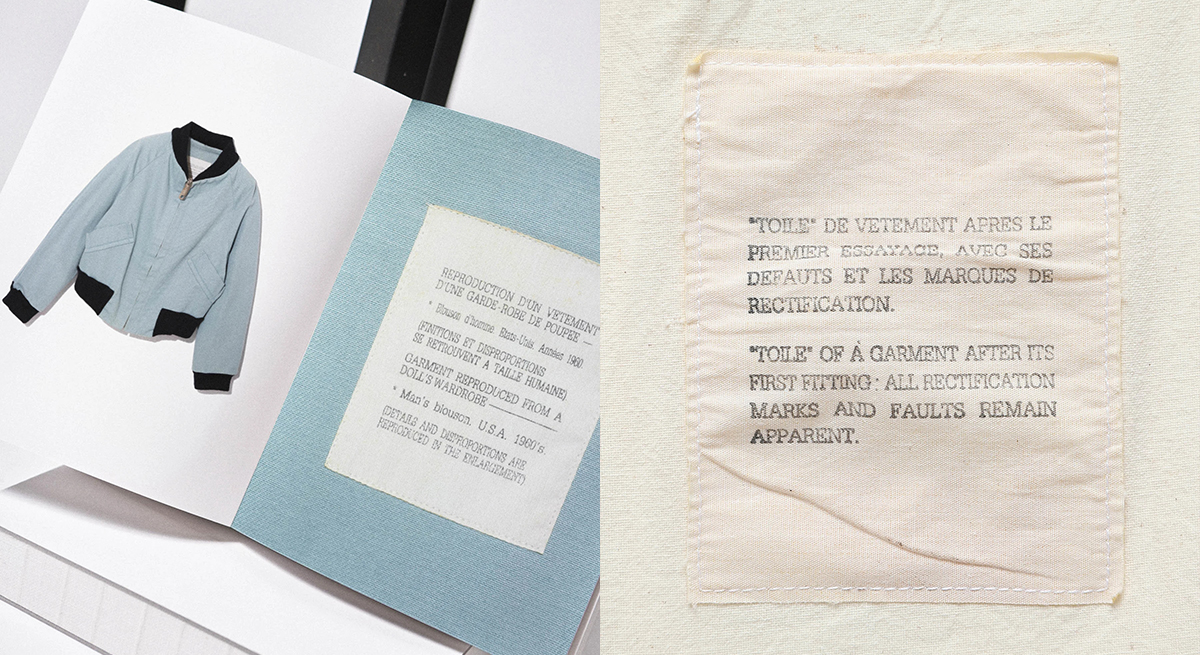 REPRODUCTION D'UN VETEMENT
D'UNE GARDE-ROBE DE POUPEE —
* Blouson d'homme. Etats-Unis. Années 1960
(FINITIONS ET DISPROPORTIONS
SE RETROUVENT A TAILLE HUMAINE)
GARMENT REPRODUCED FROM A
DOLL'S WARDROBE ————
* Man's blouson. U.S.A. 1960's.
(DETAILS AND DISPROPORTIONS ARE
REPRODUCED IN THE ENLARGEMENT)
"TOILE" DE VETEMENT APRES LE
PREMIER ESSAYAGE, AVEC SES
DEFAUTS ET LES MARQUES DE
RECTIFICATION.
"TOILE" OF À GARMENT AFTER ITS
FIRST FITTING : ALL RECTIFICATION
MARKS AND FAULTS REMAIN
APPARENT.